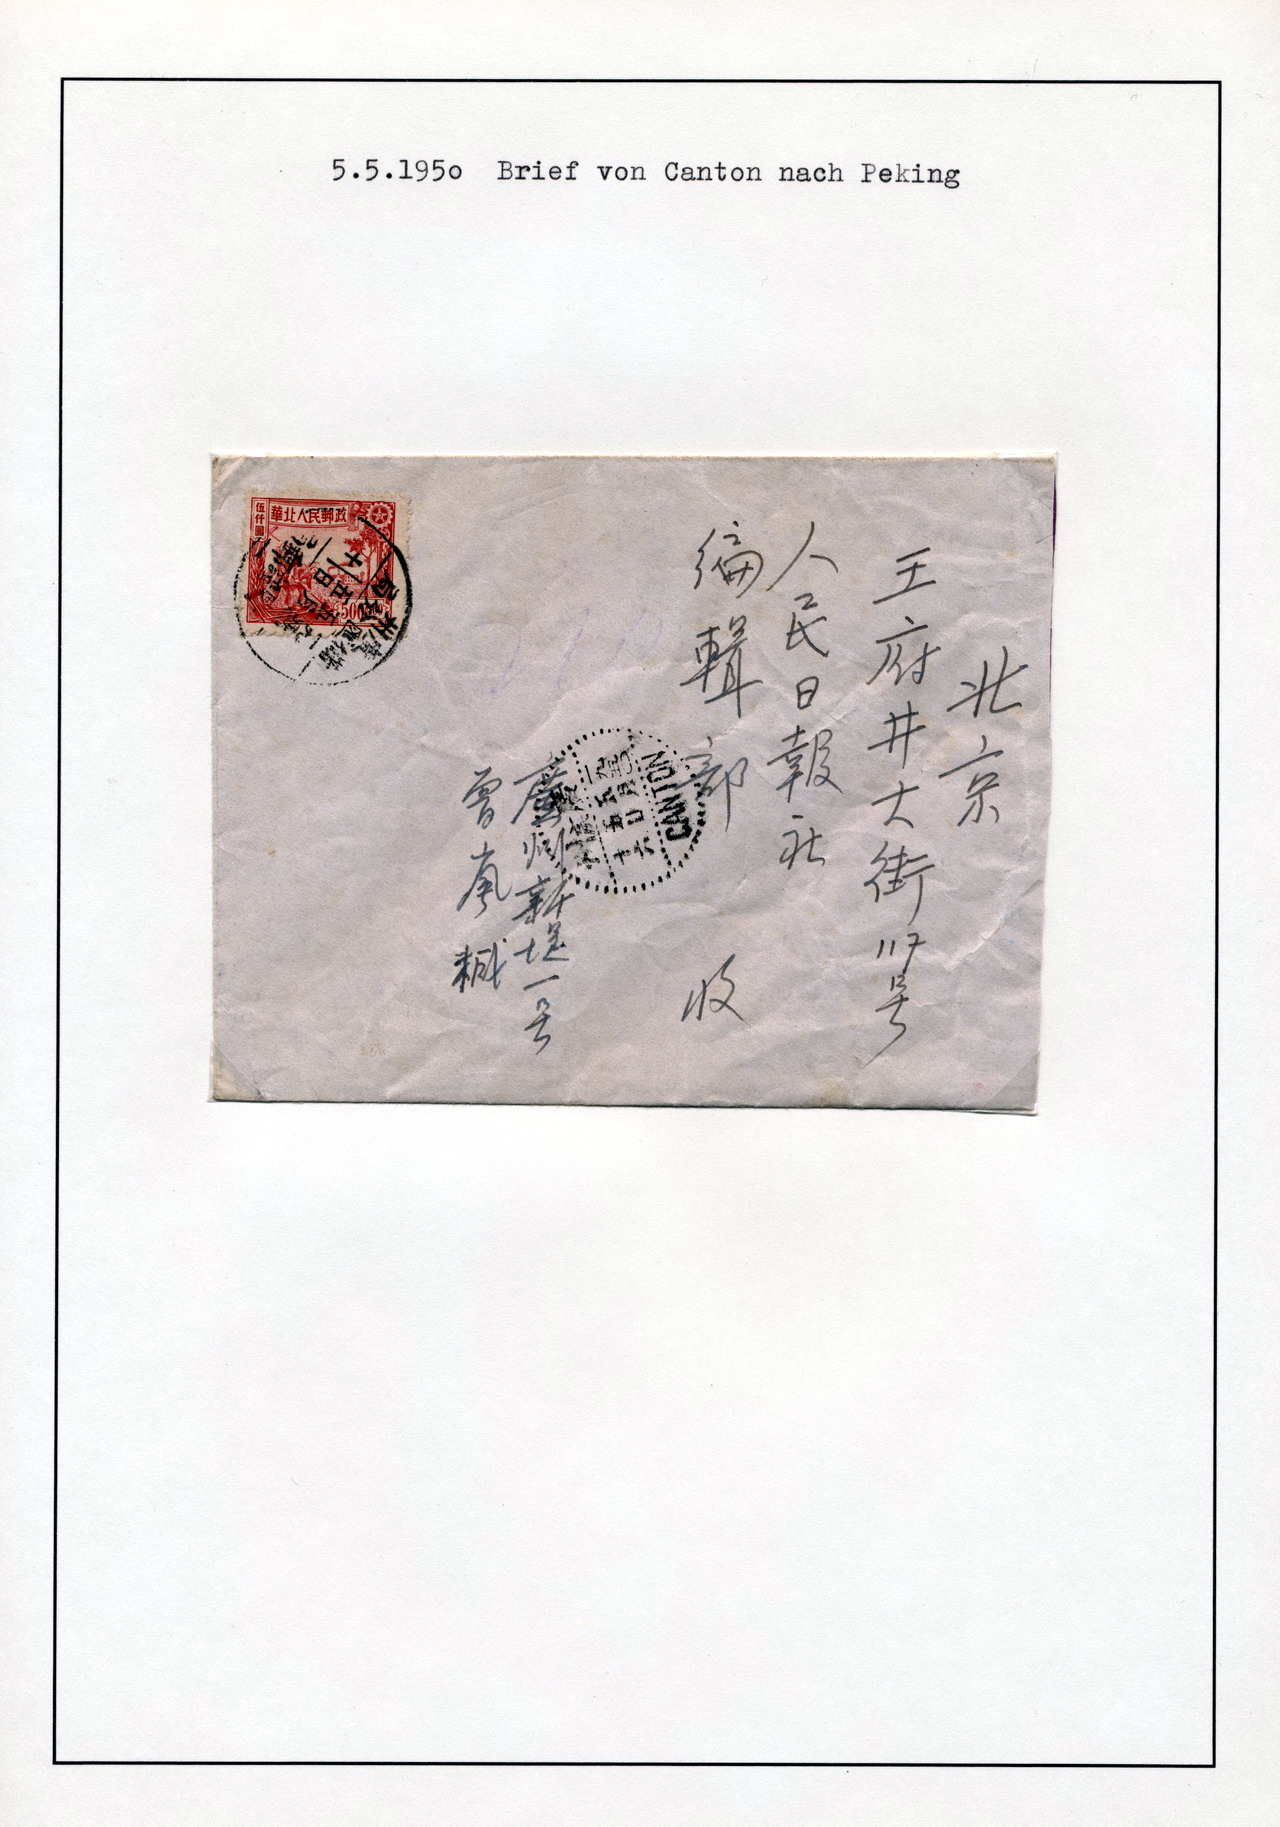 5.5.195o  Brief von Canton nach Peking
華北人民郵政
伍仟圓
500
北京
王府井大街117号
人民日報社
編輯部 收
廣州新堤一号
曾嵐緘
CANTON